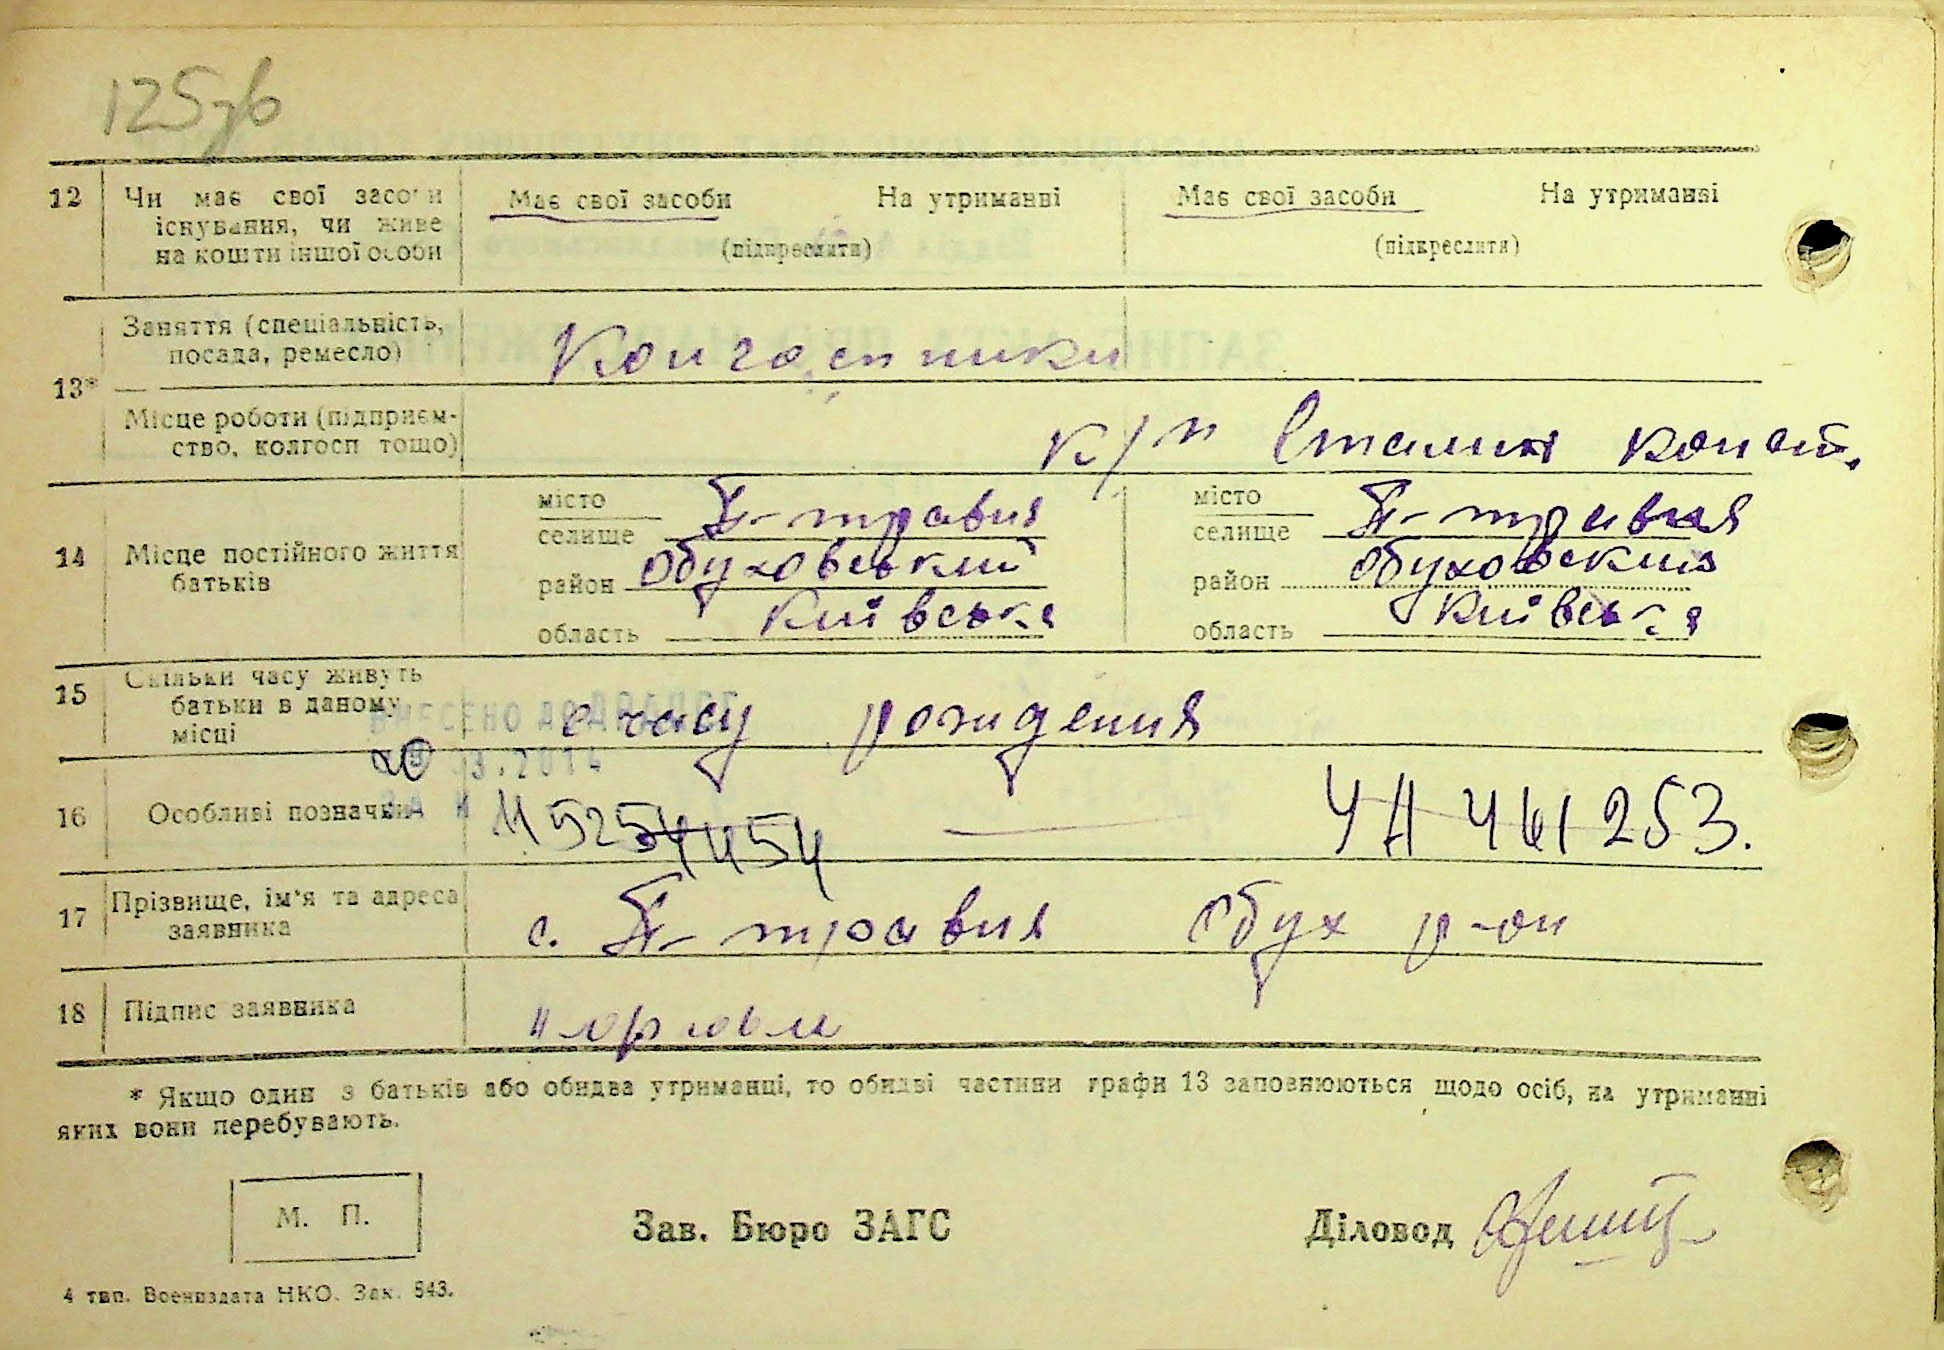 125зв
12 Чи має свої засоби Має свої засоби На утриманні Має свої засоби На утриманні
існування, чи живе (підкреслити) (підкреслити)
на кошти іншої особи
Заняття (спеціальність,
посада, ремесло) Колгоспники
13*
Місце роботи (підприєм- к/п Сталин
ство, колгосп тощо)
місто місто
селище П-травня селище П-травня
14 Місце постійного життя район Обуховський район Обуховский
батьків
область Київська область Київська
15 Скільки часу живуть
батьки в даному с часу рождения
місці
2014
16 Особливі позначки 461253.
17 Прізвище, ім'я та адреса
заявника с. П-травня Обух р-он
18 Підпис заявника
* Якщо один з батьків або обидва утриманці, то обидві частини графи 13 заповнюються щодо осіб, на утриманні
яких вони перебувають.
М. П. Зав. Бюро ЗАГС Діловод
4 тип. Воениздата НКО. Зак. 843.